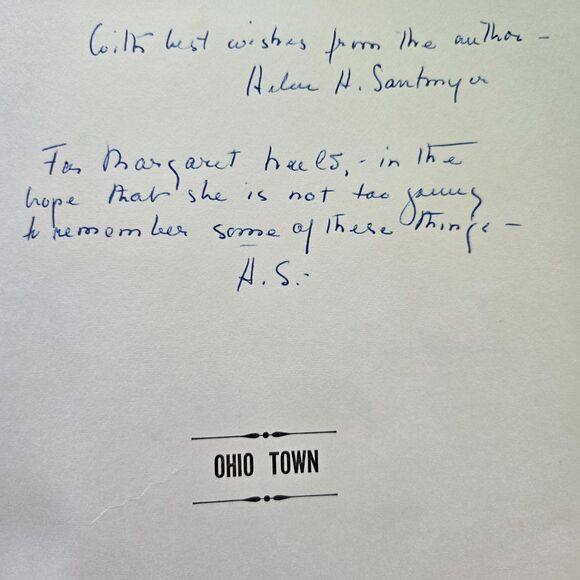 With best wishes from the author -
Helen H. Santmyer
For Margaret - in the
hope that she is not too young
to remember some of these things -
H. S. -
OHIO TOWN